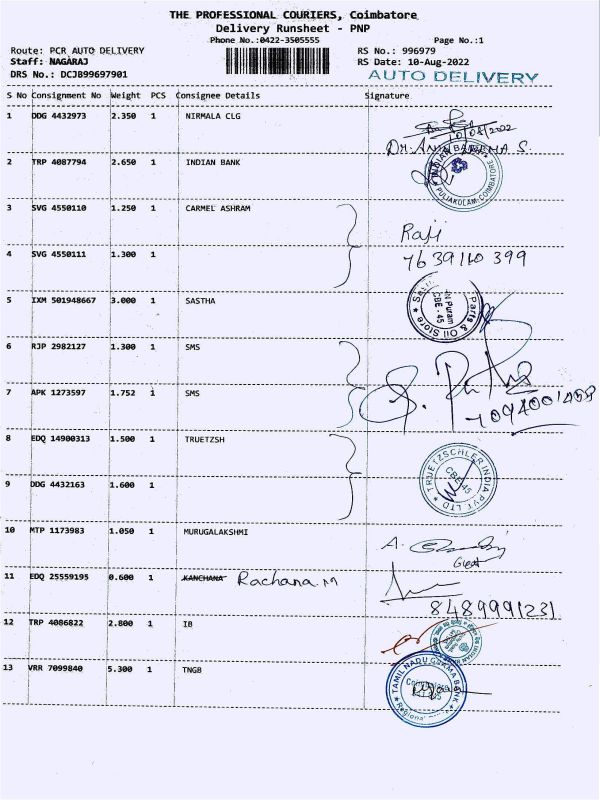 THE PROFESSIONAL COURIERS, Coimbatore
Delivery Runsheet - PNP
Phone No.:0422-3505555
Page No.:1
Route: PCR AUTO DELIVERY
RS No.: 996979
Staff: NAGARAJ
RS Date: 10-Aug-2022
DRS No.: DCJB99697901
AUTO DELIVERY
S No Consignment No Weight PCS Consignee Details Signature
1 DDG 4432973 2.350 1 NIRMALA CLG
10/08/2022
2 TRP 4087794 2.650 1 INDIAN BANK
PULIAKULAM, COIMBATORE
3 SVG 4550110 1.250 1 CARMEL ASHRAM
Raji
4 SVG 4550111 1.300 1
7639110399
5 IXM 501948667 3.000 1 SASTHA
Parts & Oil Store
Puram
CBE - 45
6 RJP 2982127 1.300 1 SMS
7 APK 1273597 1.752 1 SMS
8 EDQ 14900313 1.500 1 TRUETZSH
TRUETZSCHLER INDIA PVT LTD
CBE-45
9 DDG 4432163 1.600 1
10 MTP 1173983 1.050 1 MURUGALAKSHMI
A.
11 EDQ 25559195 0.600 1 KANCHANA Rachana.M
8489991231
12 TRP 4086822 2.800 1 IB
13 VRR 7099840 5.300 1 TNGB
TAMIL NADU GRAMA BANK
Regional